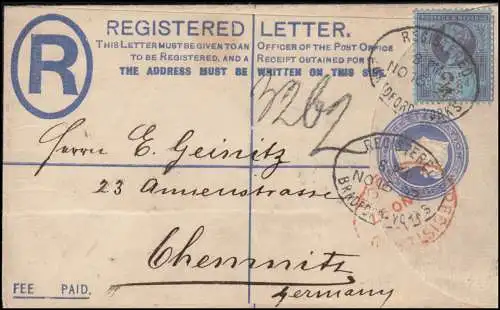 REGISTERED LETTER.
THIS LETTER MUST BE GIVEN TO AN OFFICER OF THE POST OFFICE
TO BE REGISTERED, AND A RECEIPT OBTAINED FOR IT.
THE ADDRESS MUST BE WRITTEN ON THIS SIDE.
R
POSTAGE & REVENUE
REGISTERED
NO 16
BRADFORD YORKS
3262
REGISTERED
NO 16
BRADFORD YORKS
REGISTRATION
Herrn E. Geinitz
23 Annenstrasse
Chemnitz
Germany
FEE PAID.